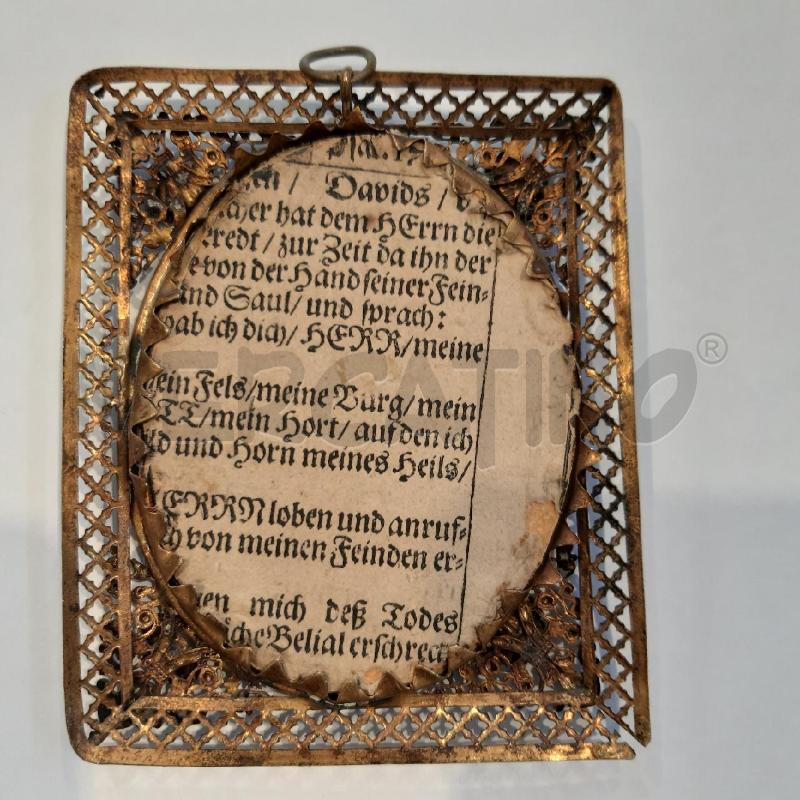 Psal. 1
/ Davids /
cher hat dem HErrn die
eredt / zur Zeit da ihn der
e von der Hand seiner Fein-
and Saul / und sprach:
hab ich dich / HERR / meine
mein Fels / meine Burg / mein
TT / mein Hort / auf den ich
ld und Horn meines Heils /
ERRN loben und anruf-
h von meinen Feinden er-
en mich deß Todes
che Belial erschrec
MERCATINO ®